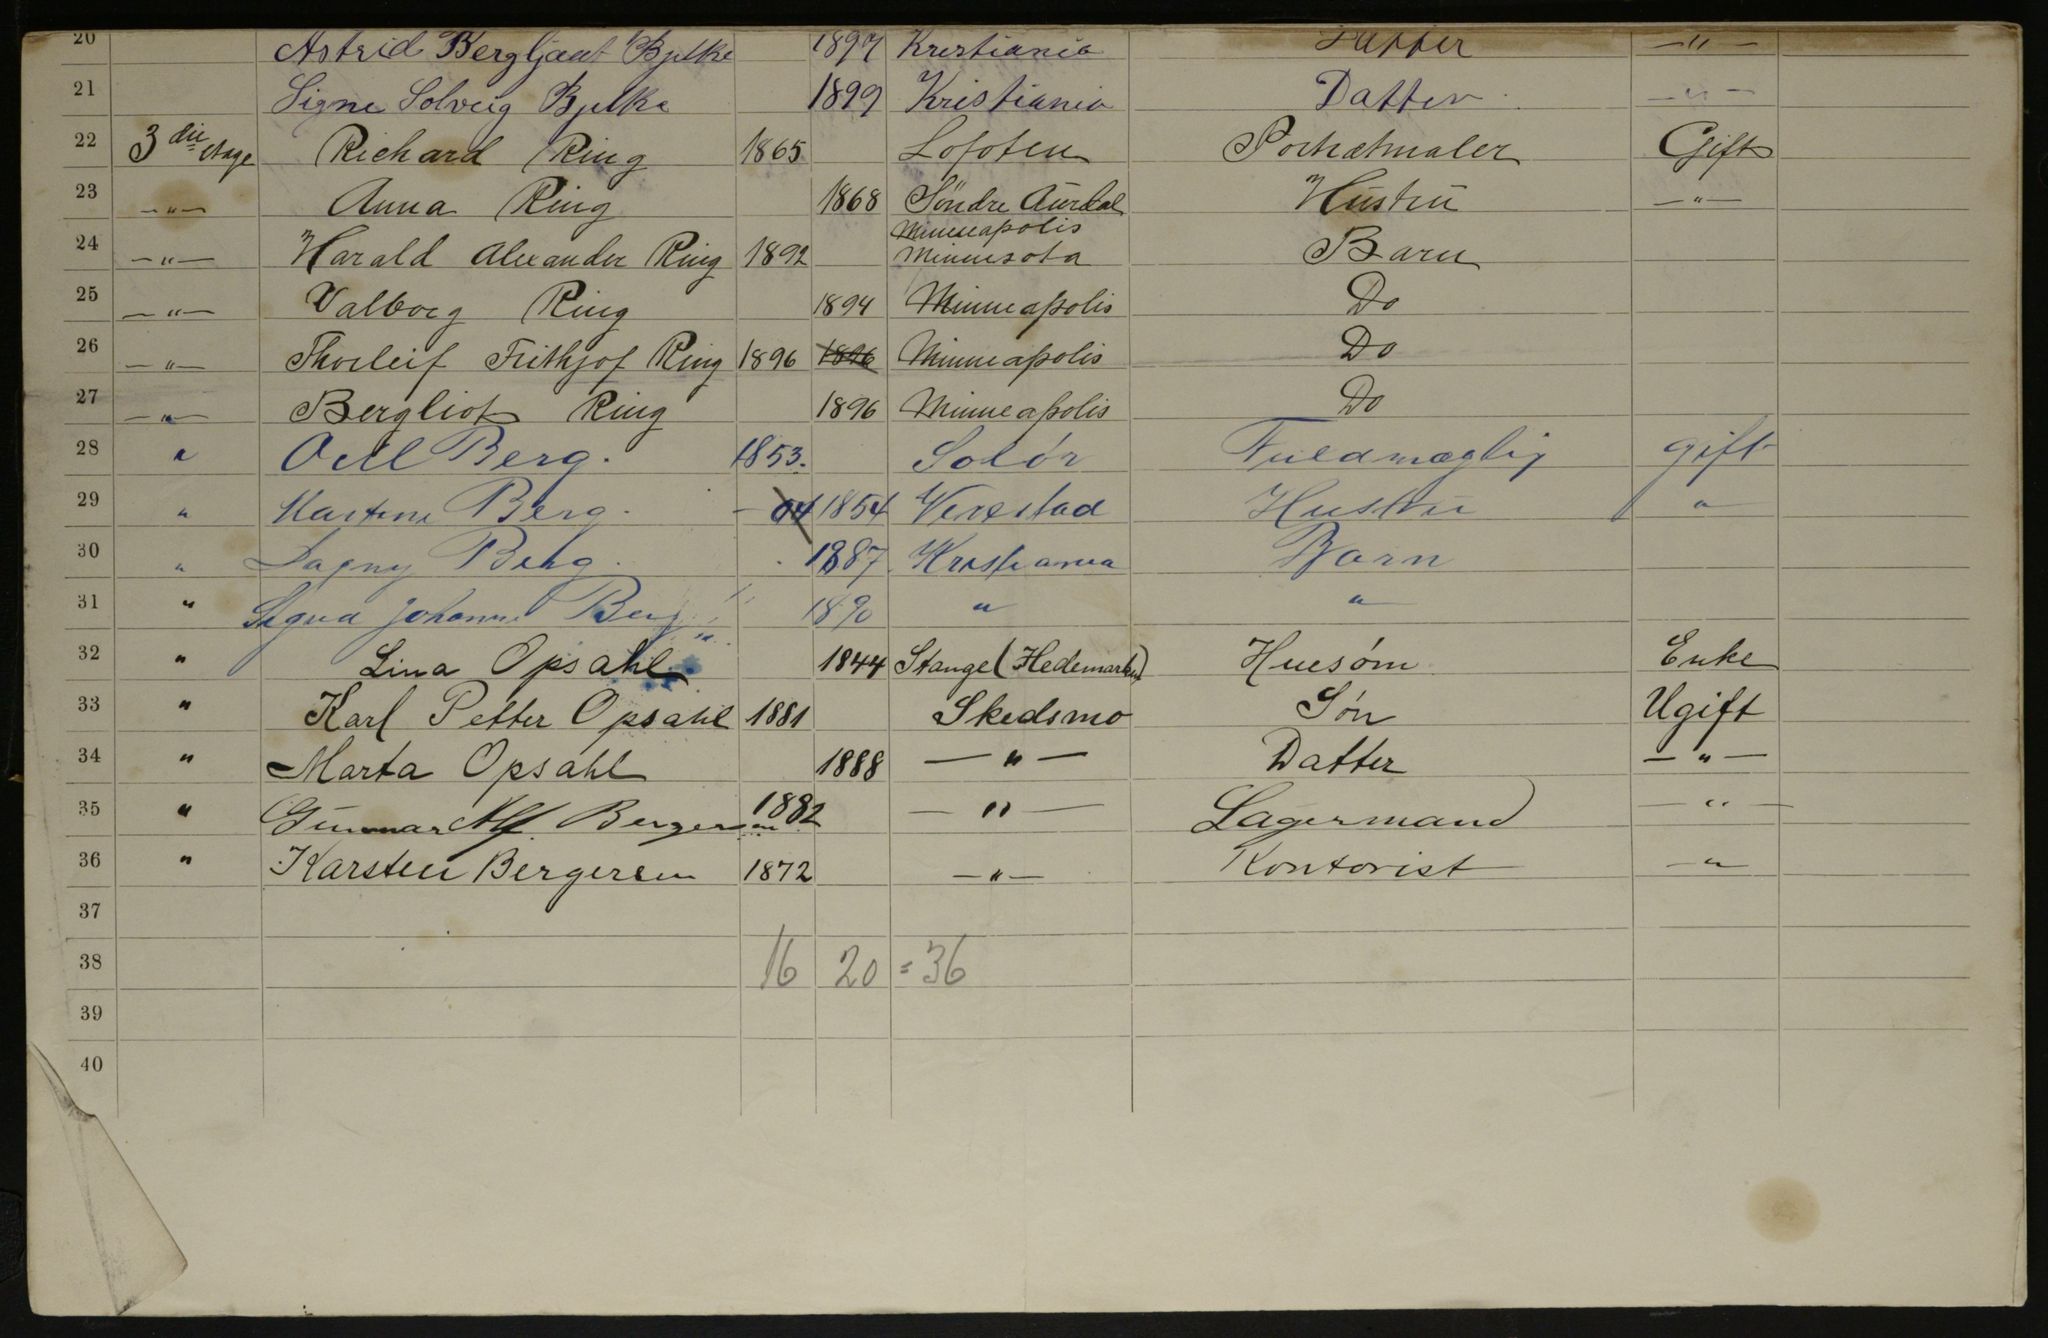 20 Astrid Bergljaut Bjelke 1897 Kristiania Datter —"—
21 Signe Solveig Bjelke 1899 Kristiania Datter —"—
22 3die etage Richard Ring 1865 Lofoten Portrætmaler Gift
23 —"— Anna Ring 1868 Söndre Aurdal Hustru —"—
24 —"— Harald Alexander Ring 1892 Minneapolis Minnesota Barn
25 —"— Valborg Ring 1894 Minneapolis Do
26 —"— Thorleif Frithjof Ring 1896 1896 Minneapolis Do
27 —"— Bergliot Ring 1896 Minneapolis Do
28 " Berg. 1853. Solör Fuldmægtig gift
29 " Berg. 54 1854 Hustru "
30 " Dagny Berg. 1887 Kristiania Barn
31 " Johanne Berg 1890 " "
32 " Lina Opsahl 1844 Stange (Hedemarken) Huusöm Enke
33 " Karl Petter Opsahl 1881 Skedsmo Sön Ugift
34 " Marta Opsahl 1888 —"— Datter —"—
35 " Gunnar Alf. Bergersen 1882 —"— Lagermand —"—
36 " Karsten Bergersen 1872 —"— Kontorist —"—
37
38 16 20 = 36
39
40